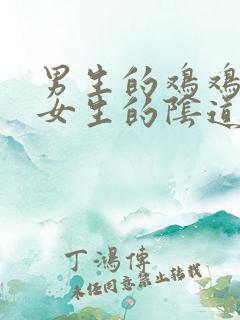 男生的鸡鸡
女生的陰道
丁鴻傳
未经同意禁止转载